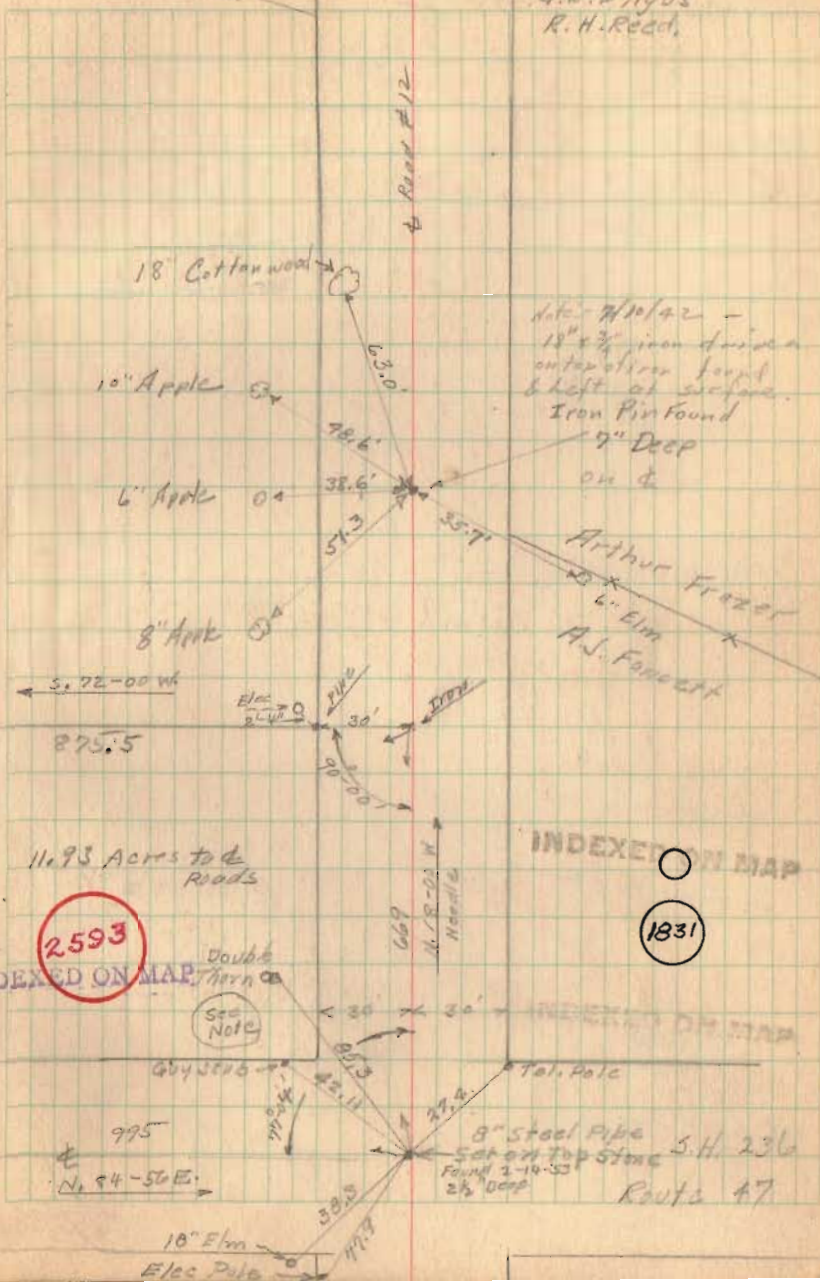 R. H. Reed.
℄ Road # 12
18" Cottonwood
63.0'
Note - 7/10/42 -
18" x 3/4 iron driven
on top of iron found
& left at surface.
Iron Pin Found
7" Deep
on ℄
10" Apple
78.6'
6" Apple
38.6'
35.7'
51.3
Arthur Frazer
6" Elm
A.J. Fawcett
8" Apple
S. 72-00 W.
Elec
Pipe
Iron
30'
875.5
90-00'
11.93 Acres to ℄
Roads
669
N. 18-00 W
Needle
INDEXED ON MAP
1831
2593
INDEXED ON MAP
Double
Thorn
See
Note
30' 30'
INDEXED ON MAP
80.3
Guy Stub
42.11
27.4
Tel. Pole
995
℄
N. 84-56 E.
8" Steel Pipe
Set on Top Stone
Found 2-14-53
2½" Deep
S.H. 236
Route 47
38.3
47.9
18" Elm
Elec Pole